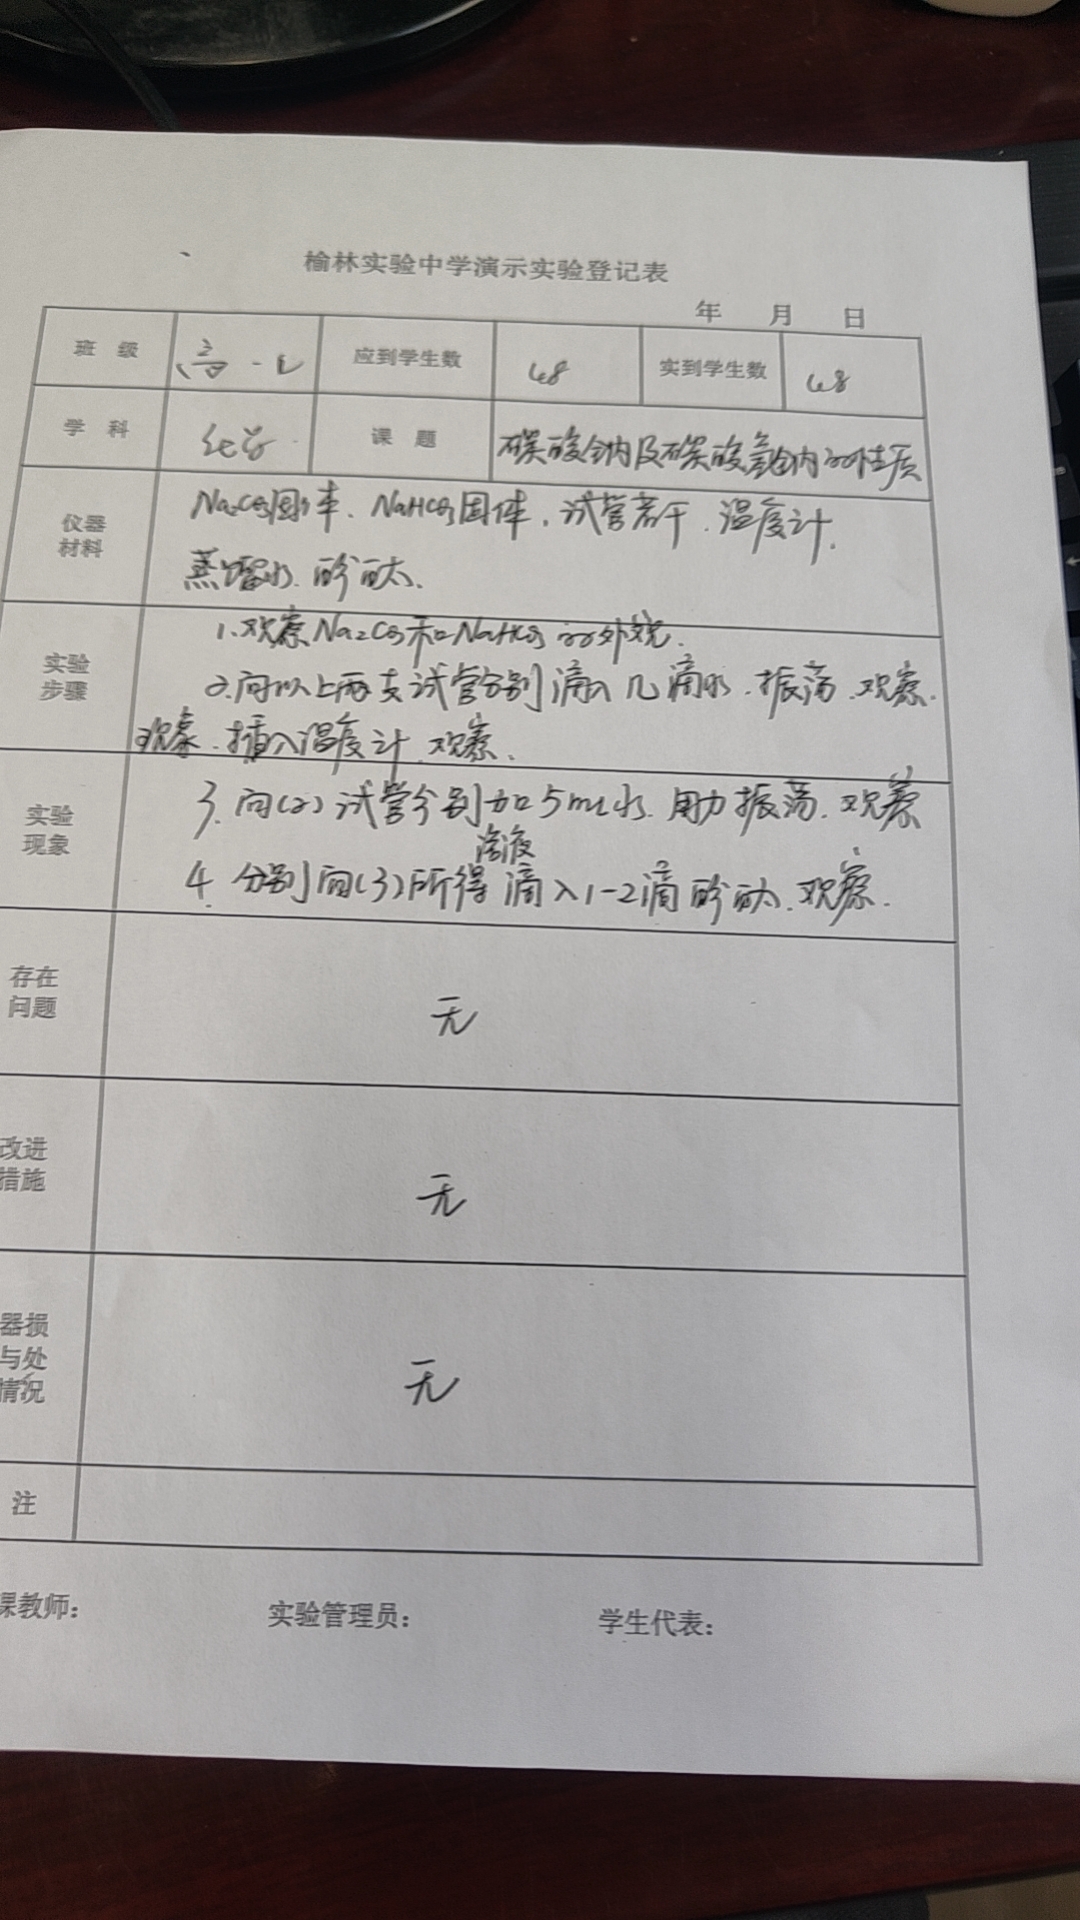 榆林实验中学演示实验登记表
年 月 日
班 级 高一 应到学生数 48 实到学生数 48
学 科 化学 课 题 碳酸钠及碳酸氢钠的性质
仪器
材料
Na2CO3固体、NaHCO3固体、试管若干、温度计、
蒸馏水、酚酞、
实验
步骤
1、观察Na2CO3和NaHCO3的外观、
2、向以上两支试管分别滴入几滴水、振荡、观察、
现象、插入温度计、观察、
实验
现象
3、向(2)试管分别加5mL水、用力振荡、观察
溶液
4、分别向(3)所得滴入1-2滴酚酞、观察、
存在
问题
无
改进
措施
无
器损
与处
情况
无
注
课教师: 实验管理员: 学生代表: